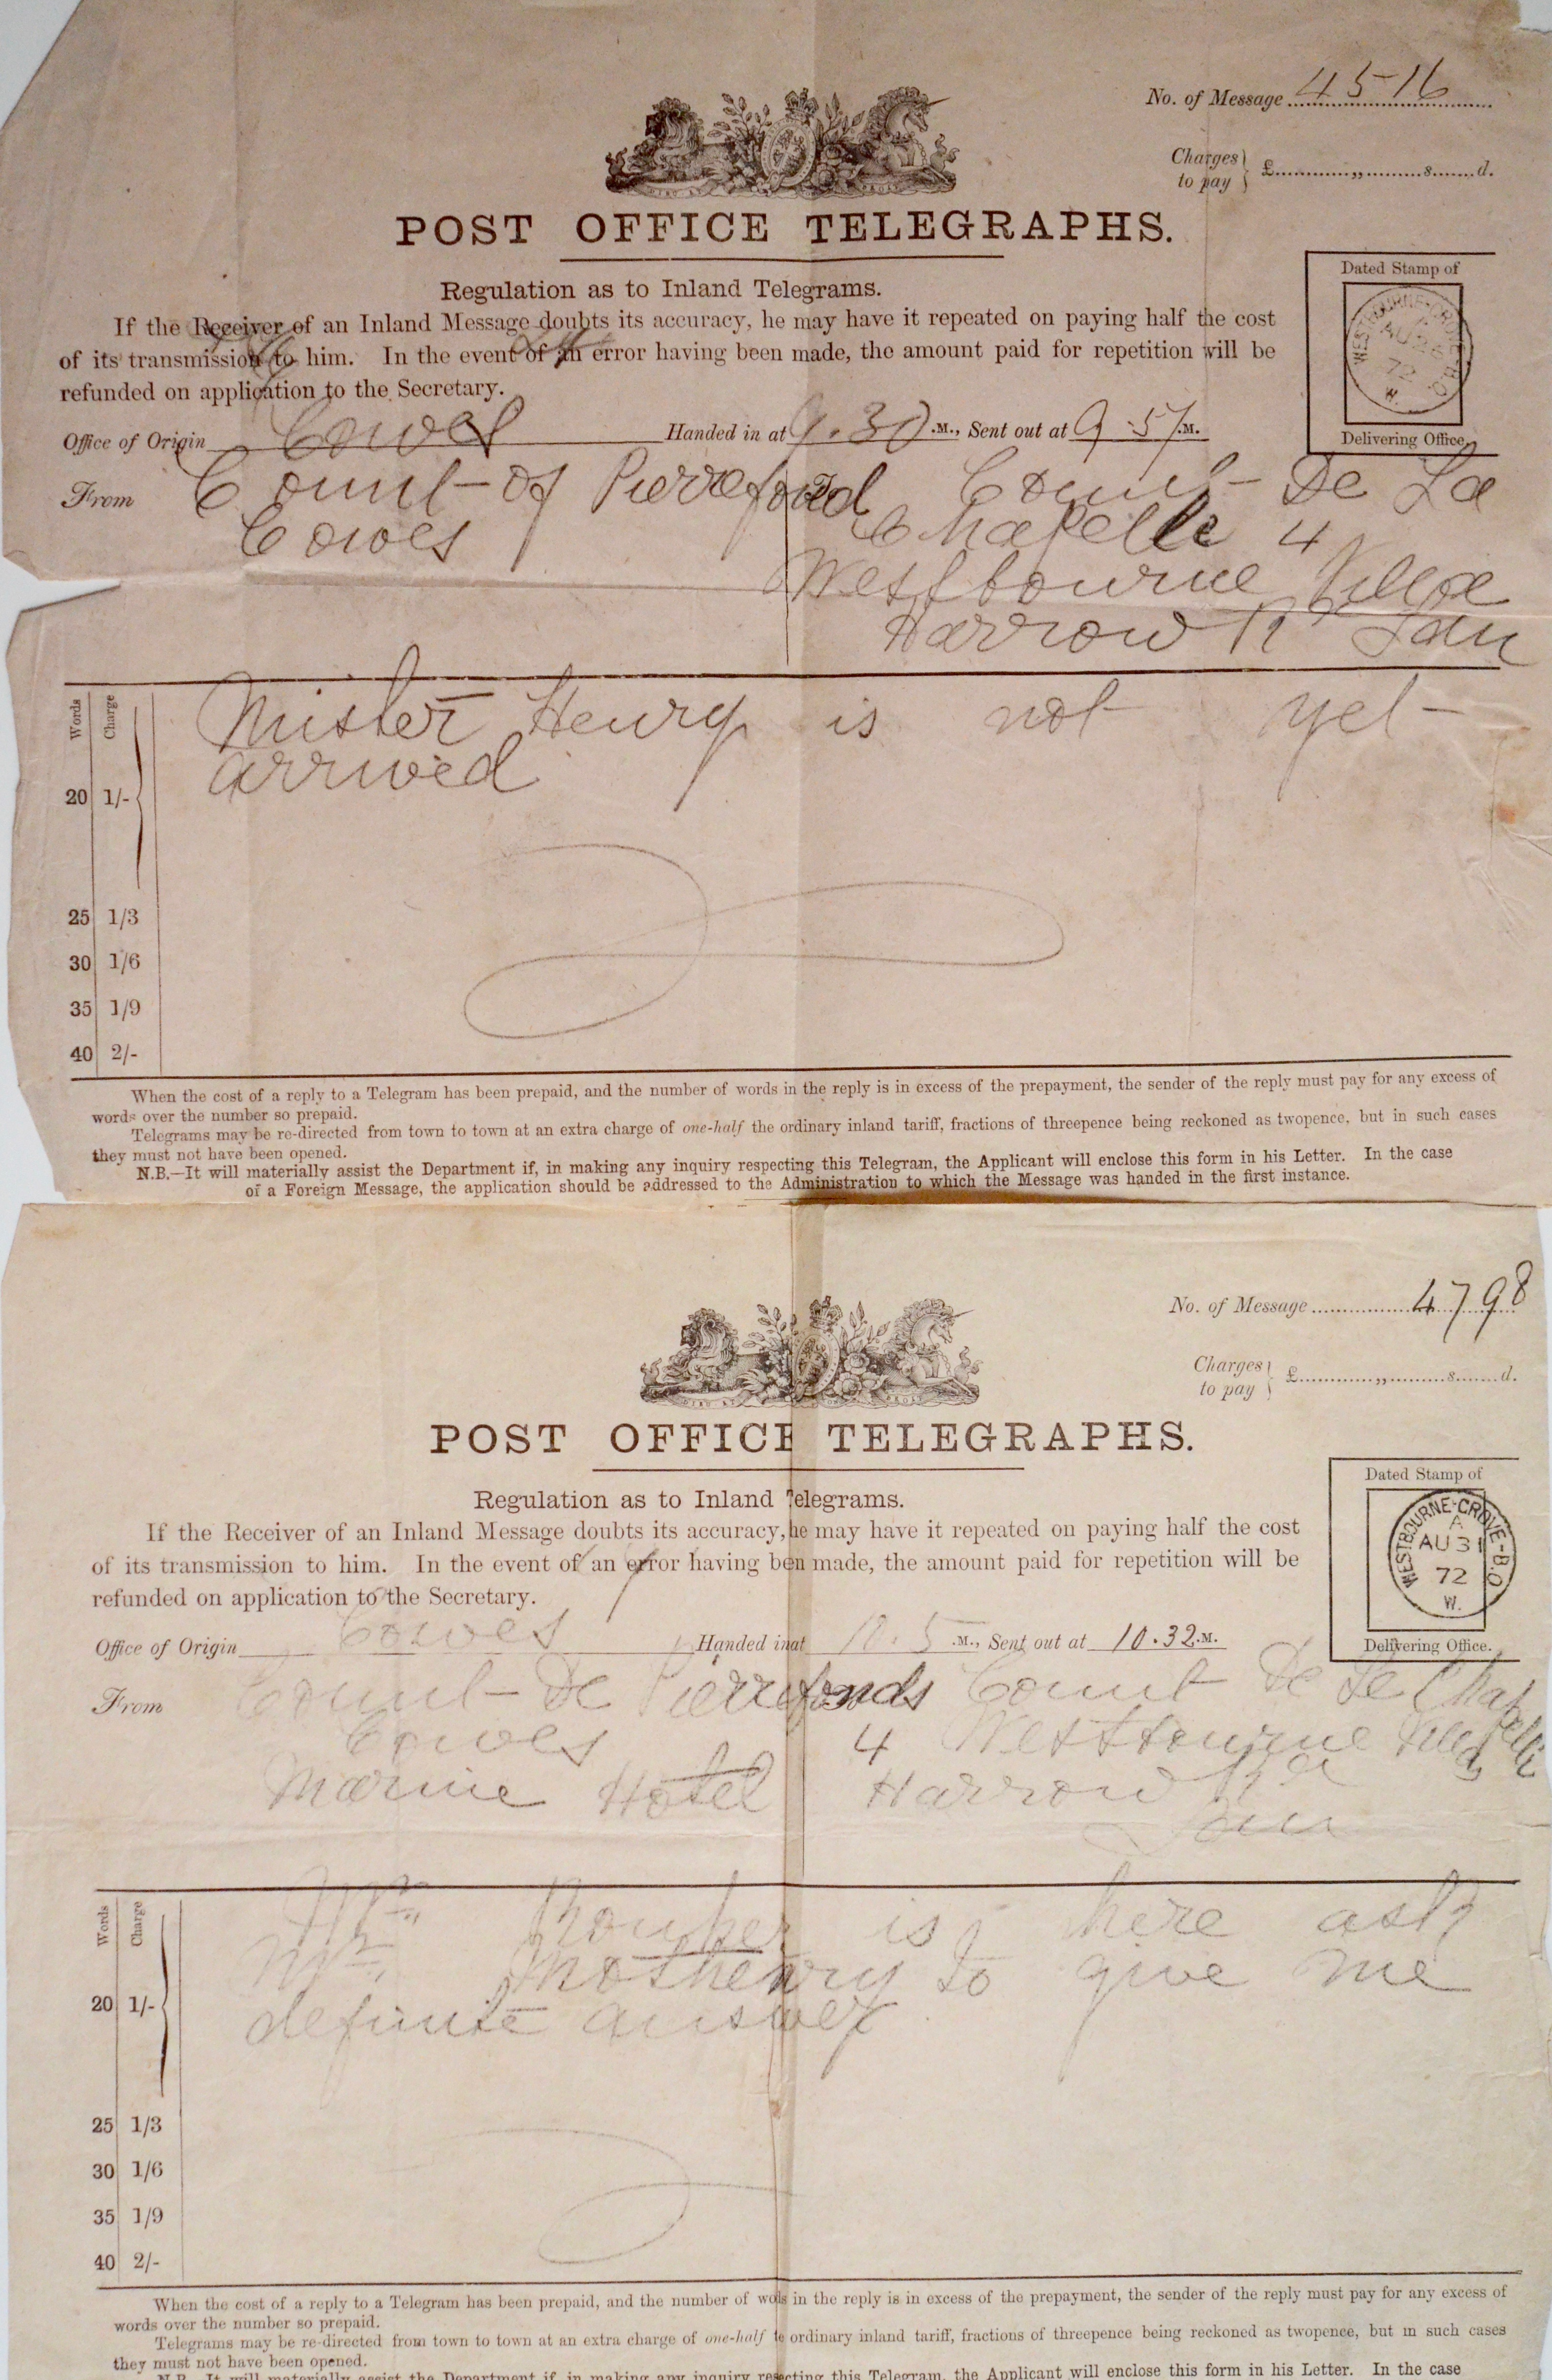 No. of Message 4516
Charges to pay } £ „ s d.
POST OFFICE TELEGRAPHS.
Dated Stamp of
WESTBOURNE-GROVE-B.O
AU 26
72
W.
Delivering Office.
Regulation as to Inland Telegrams.
If the Receiver of an Inland Message doubts its accuracy, he may have it repeated on paying half the cost
of its transmission to him. In the event of an error having been made, the amount paid for repetition will be
refunded on application to the Secretary.
Office of Origin Cowes Handed in at 9.30 .M., Sent out at 9.57 .M.
From Count of Pierrefond To Count De La
Cowes Chapelle 4
Westbourne Villae
Harrow Rd Lon
Words Charge
Mister Henry is not yet
arrived
20 1/-
25 1/3
30 1/6
35 1/9
40 2/-
When the cost of a reply to a Telegram has been prepaid, and the number of words in the reply is in excess of the prepayment, the sender of the reply must pay for any excess of
words over the number so prepaid.
Telegrams may be re-directed from town to town at an extra charge of one-half the ordinary inland tariff, fractions of threepence being reckoned as twopence, but in such cases
they must not have been opened.
N.B.—It will materially assist the Department if, in making any inquiry respecting this Telegram, the Applicant will enclose this form in his Letter. In the case
of a Foreign Message, the application should be addressed to the Administration to which the Message was handed in the first instance.
No. of Message 4798
Charges to pay } £ „ s d.
POST OFFICE TELEGRAPHS.
Dated Stamp of
WESTBOURNE-GROVE-B.O
A
AU 31
72
W.
Delivering Office.
Regulation as to Inland Telegrams.
If the Receiver of an Inland Message doubts its accuracy, he may have it repeated on paying half the cost
of its transmission to him. In the event of an error having been made, the amount paid for repetition will be
refunded on application to the Secretary.
Office of Origin Cowes Handed in at 10.5 .M., Sent out at 10.32 .M.
From Count De Pierrefonds Count De Le Chapelle
Cowes 4 Westbourne Villas
Marine Hotel Harrow Rd
Lon
Words Charge
Mr. Rouher is here ask
Mr. Mothenry to give me
definite answer
20 1/-
25 1/3
30 1/6
35 1/9
40 2/-
When the cost of a reply to a Telegram has been prepaid, and the number of words in the reply is in excess of the prepayment, the sender of the reply must pay for any excess of
words over the number so prepaid.
Telegrams may be re-directed from town to town at an extra charge of one-half the ordinary inland tariff, fractions of threepence being reckoned as twopence, but in such cases
they must not have been opened.
N.B.—It will materially assist the Department if, in making any inquiry respecting this Telegram, the Applicant will enclose this form in his Letter. In the case